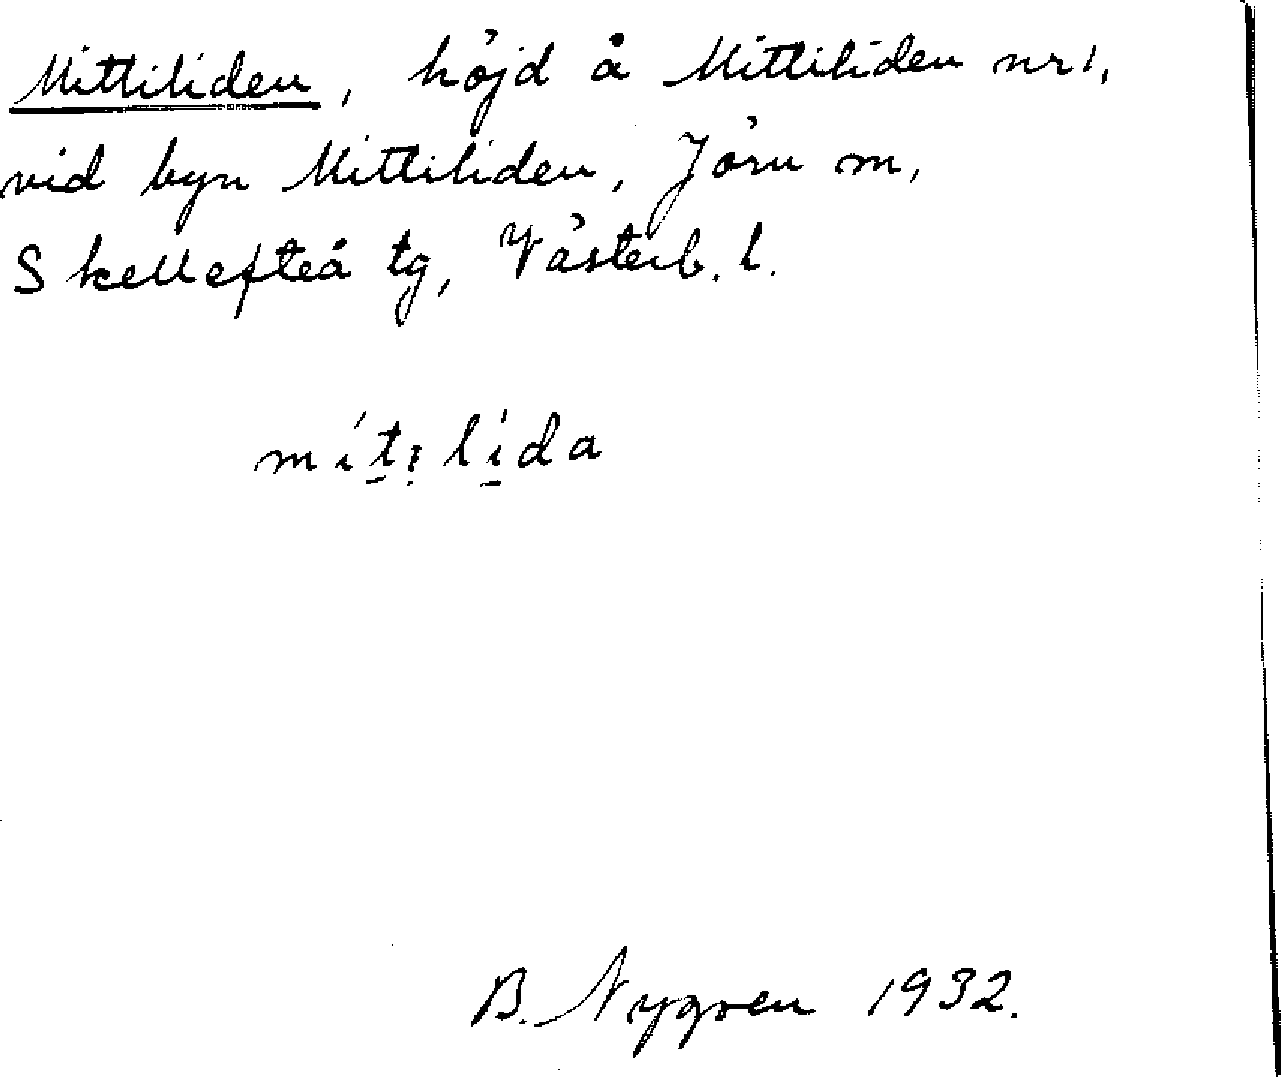 Mittiliden, höjd å Mittiliden nr 1,
vid byn Mittiliden, Jörn m,
Skellefteå tg, Västerb. l.
mítı̣lída
B. Nygren 1932.